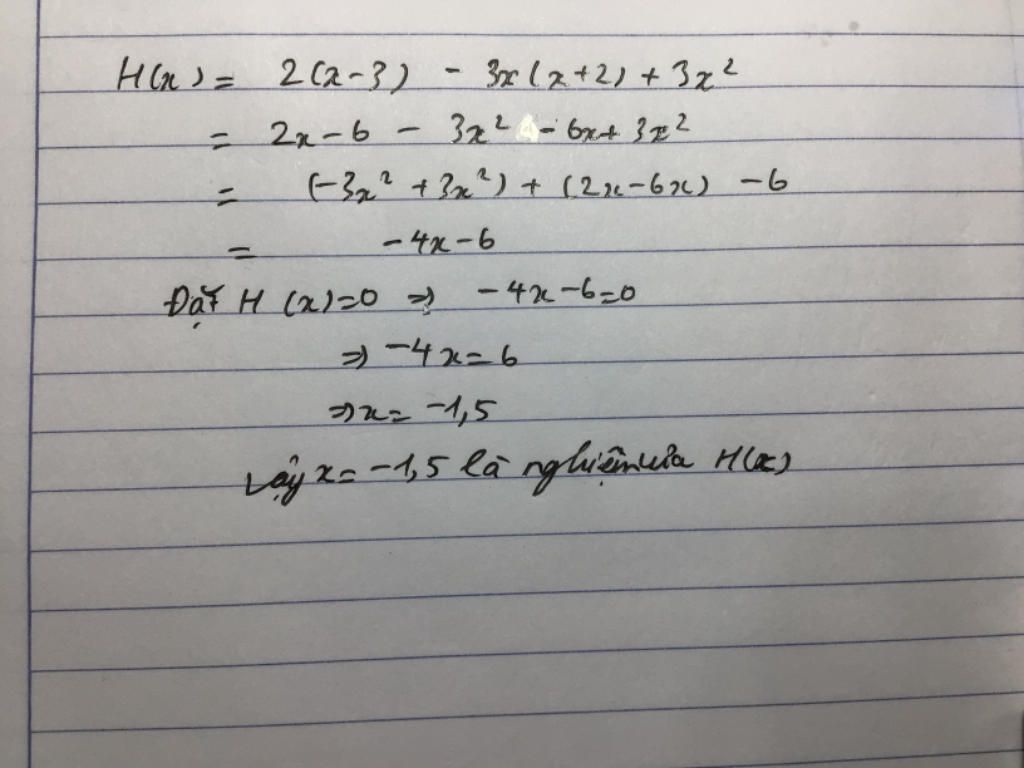 H(x) = 2(x-3) - 3x(x+2) + 3x²
= 2x-6 - 3x² - 6x+ 3x²
= (-3x² +3x²) + (2x-6x) -6
= -4x-6
Đặt H (x)=0 ⇒ -4x-6=0
⇒ -4x=6
⇒ x= -1,5
Vậy x= -1,5 là nghiệm của H(x)